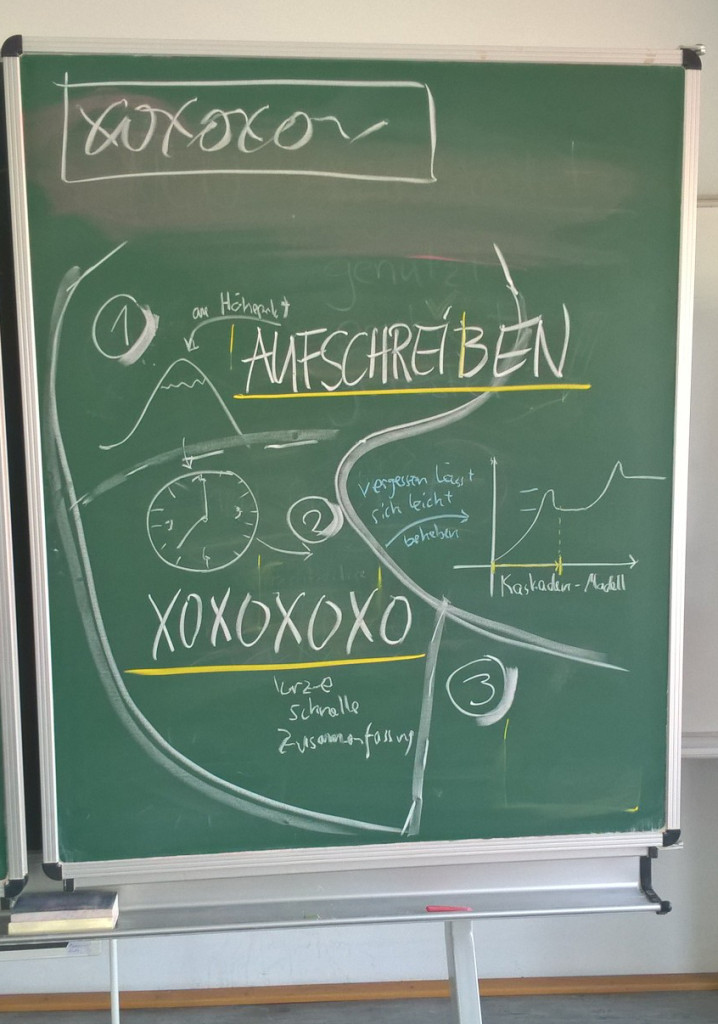 xoxoxo
1
am Höhepunkt
AUFSCHREIBEN
2
vergessen lässt
sich leicht
beheben
Kaskaden-Modell
XOXOXOXO
kurze
schnelle
Zusammenfassung
3